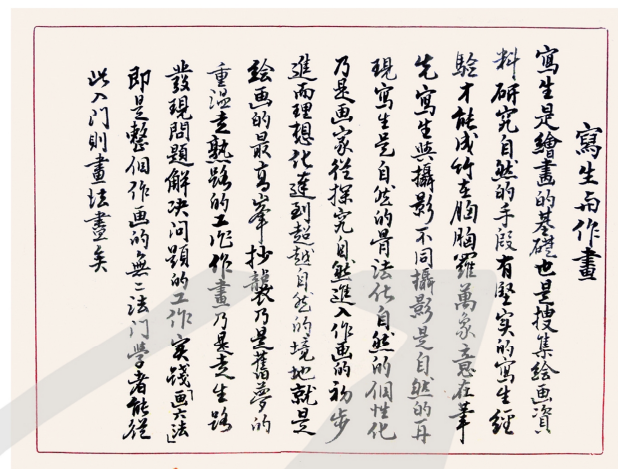 寫生與作畫
寫生是繪畫的基礎也是搜集绘画資
料研究自然的手段有堅实的寫生經
驗才能成竹在胸胸羅萬象意在筆
先寫生與攝影不同攝影是自然的再
現寫生是自然的骨法化自然的個性化
乃是画家從探究自然進入作画的初步
進而理想化達到超越自然的境地就是
绘画的最高峯抄襲乃是舊夢的
重溫走熟路的工作作畫乃是走生路
發現問題解决问題的工作实踐「画六法」
即是整個作画的無二法门學者能從
此入门則畫法盡矣